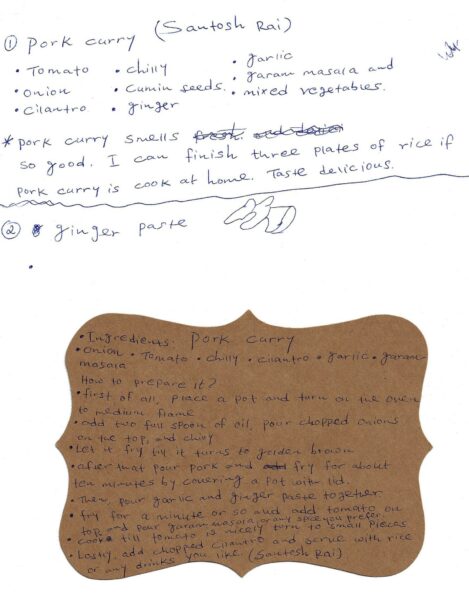 ① Pork curry (Santosh Rai)
• Tomato • chilly • garlic
• onion • cumin seeds. • garam masala and
• cilantro • ginger • mixed vegetables.
* pork curry smells
so good. I can finish three plates of rice if
pork curry is cook at home. Taste delicious.
② ginger paste
•
• Ingredients. Pork curry
• onion • Tomato • chilly • cilantro • garlic • garam
masala
How to prepare it?
• first of all, place a pot and turn on the oven
to medium flame
• add two full spoon of oil, pour chopped onions
on the top, and chilly
• Let it fry till it turns to golden brown
• after that pour pork and fry for about
ten minutes by covering a pot with lid.
• Then, pour garlic and ginger paste together.
• fry for a minute or so and add tomato on
top and pour garam masala or any spice you prefer.
• cook till tomato is nicely torn to small pieces
• Lastly, add chopped cilantro and serve with rice
or any drinks you like. (Santosh Rai)